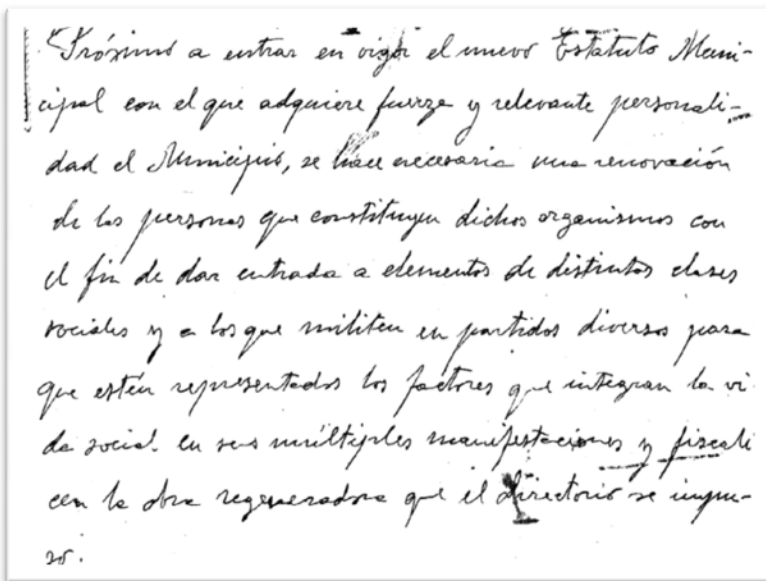 "Próximo a entrar en vigor el nuevo Estatuto Muni-
cipal con el que adquiere fuerza y relevante personali-
dad el Municipio, se hace necesaria una renovación
de las personas que constituyen dichos organismos con
el fin de dar entrada a elementos de distintas clases
sociales y a los que militen en partidos diversos para
que estén representados los factores que integran la vi
da social en sus múltiples manifestaciones y fiscali
cen la obra regeneradora que el Directorio se impu-
so.